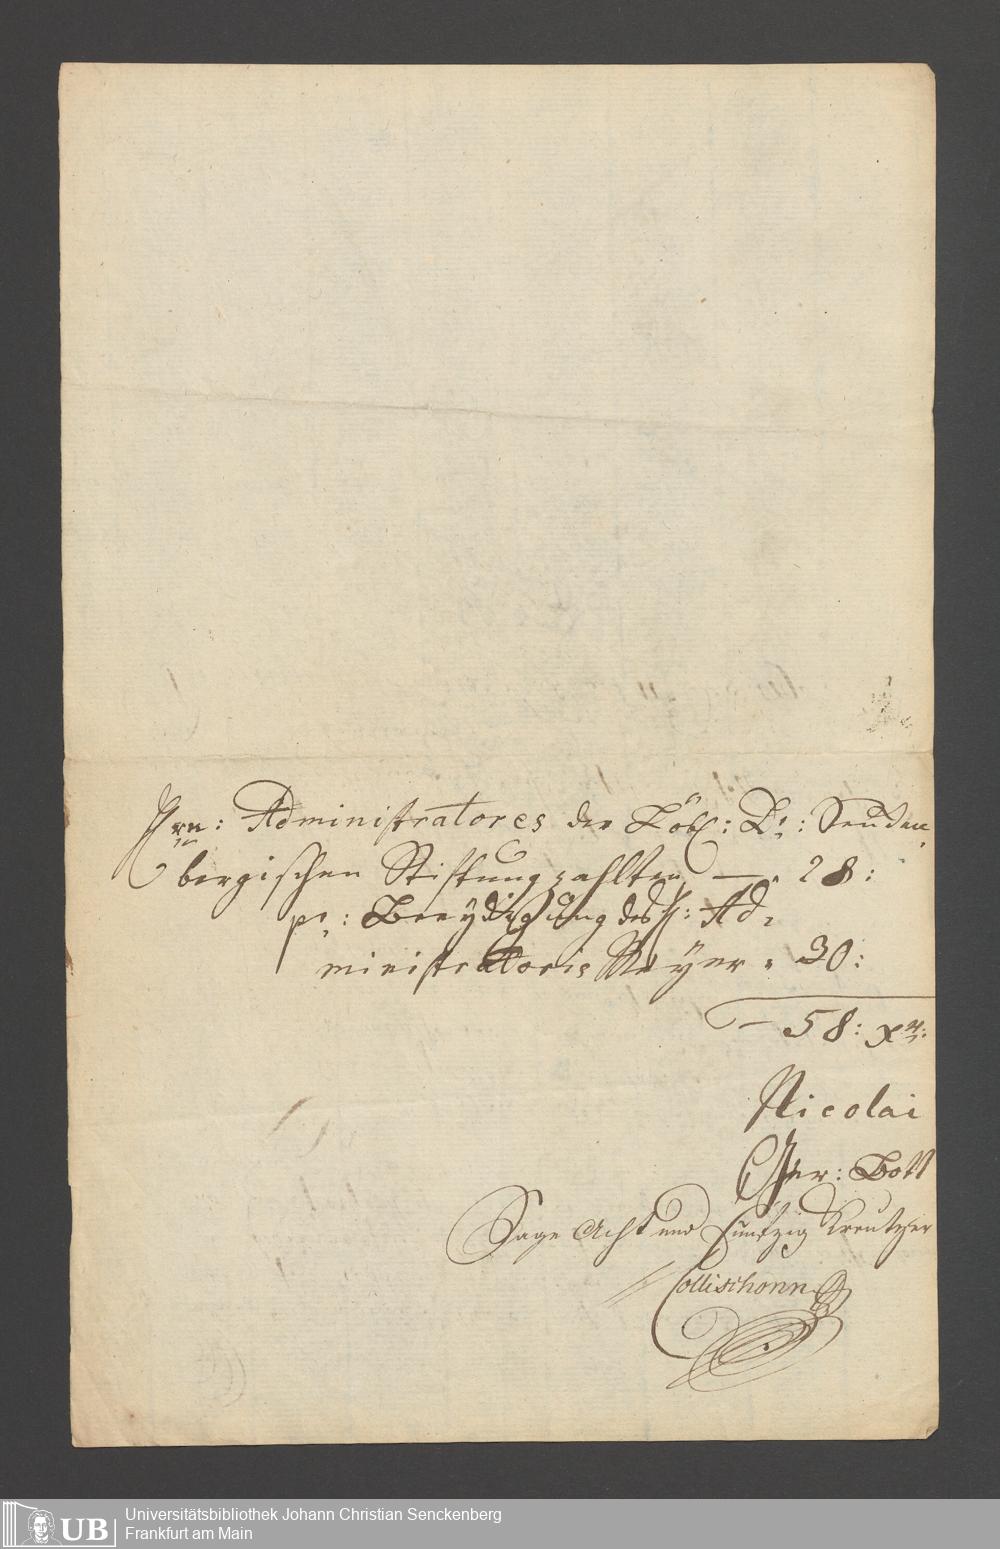 Hrn: Administratores der Löbl: Dr: Sencken
bergischen Stiftung zahlten — " 28:
pr: Beeydigung des H: Ad=
ministratoris Meyer " 30:
— 58: Xr:
Nicolai
Ger: Bott
Sage Acht und fünfzig Kreutzer
Collischonn
UB
Universitätsbibliothek Johann Christian Senckenberg
Frankfurt am Main